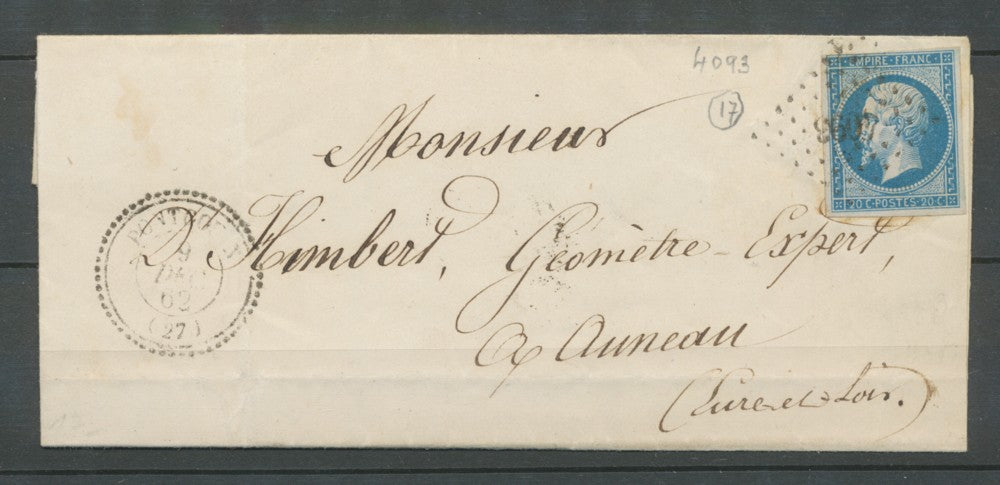 4093
17
EMPIRE FRANC
20 C · POSTES 20 C
Monsieur
Himbert, Géomètre-Expert,
à Auneau
(Eure-et-Loir.)
9
62
(27)